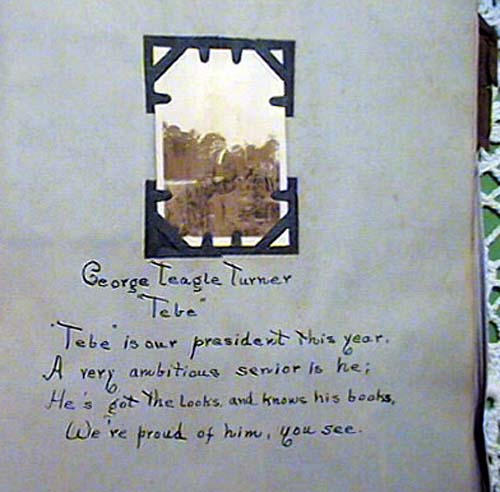 George Teagle Turner
"Tebe"
"Tebe" is our president this year.
A very ambitious senior is he;
He's got the looks, and knows his books,
We're proud of him, you see.